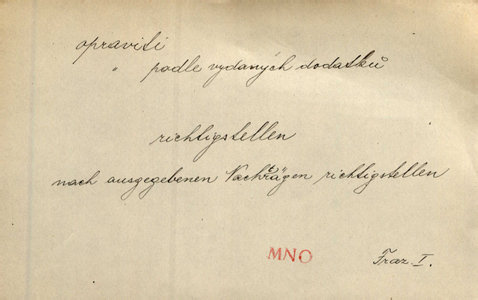 opraviti
" podle vydaných dodatků
richtigstellen
nach ausgegebenen Nachträgen richtigstellen
MNO
Fraz I.